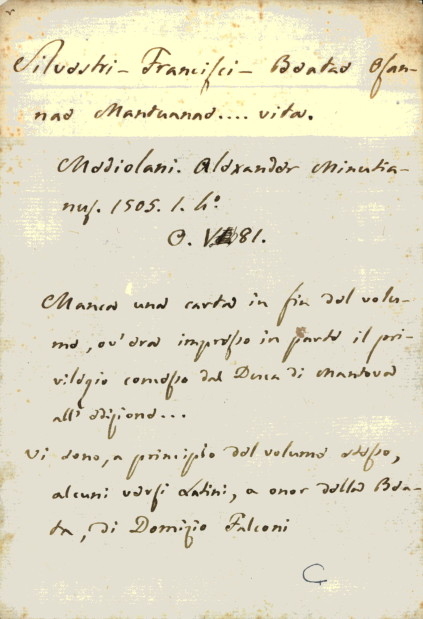 Silvestri – Francisci – Beatae Osan-
nae Mantuanae.... vita.
Mediolani. Alexander Minutia-
nus. 1505. 1. 4º.
O. V 81.
Manca una carta in fin del volu-
me, ov'era impresso in parte il pri-
vilegio concesso dal Duca di Mantova
all'edizione...
Vi sono, a principio del volume stesso,
alcuni versi Latini, a onor della Bea-
ta, di Domizio Falconi
C